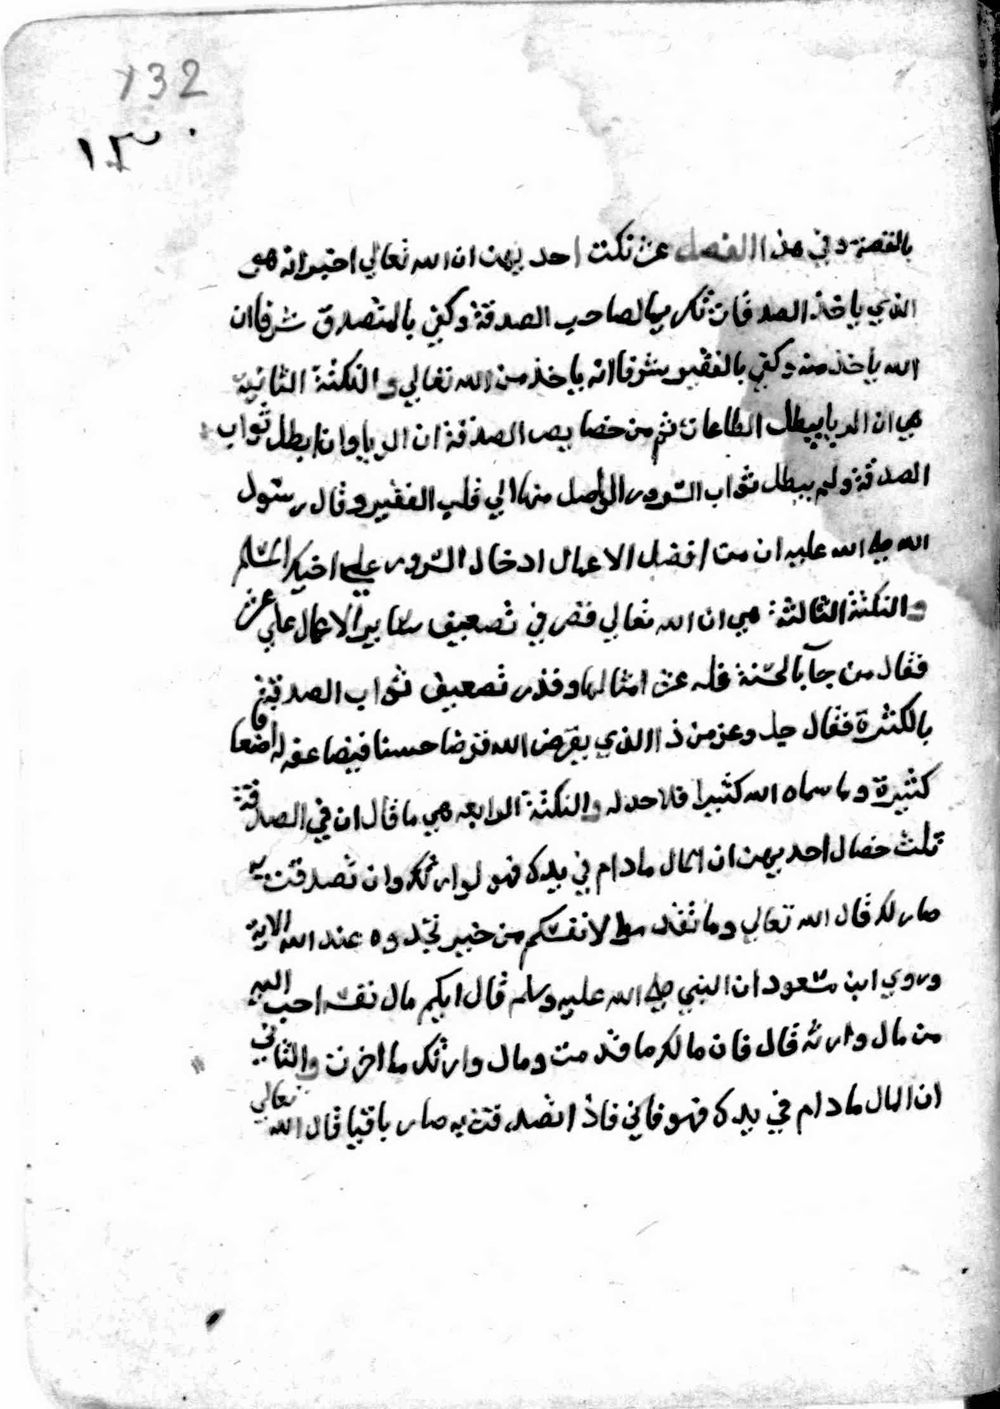 132
١٣٠
بالقصة وفي هذا الفصل عشر نكت احديهن ان الله تعالي اخبر انه هو
الذي ياخذ الصدقات تكريما لصاحب الصدقة وكفي بالمتصدق شرفا ان
الله ياخذ منه وكفي بالفقير شرفا انه ياخذ من الله تعالي والنكتة الثانية
هي ان الريا يبطل الطاعات ثم من خصايص الصدقة ان الريا وان ابطل ثواب
الصدقة ولم يبطل ثواب السرور الواصل منها الي قلب الفقير وقال رسول
الله صلى الله عليه ان من افضل الاعمال ادخال السرور علي اخيك المسلم
والنكتة الثالثة هي ان الله تعالي قصر في تضعيف ساير الاعمال علي عشر
فقال من جآ بالحسنة فله عشر امثالها وقدر تضعيف ثواب الصدقة
بالكثرة فقال جل وعز من ذا الذي يقرض الله قرضا حسنا فيضاعفه له اضعافا
كثيرة وما سماه الله كثيرا فلا حد له والنكتة الرابعه هي ما قال ان في الصدقة
ثلث خصال احديهن ان المال مادام في يدك فهو لوارثك وان تصدقت به
صار لك قال الله تعالي وما تقدموا لانفسكم من خير تجدوه عند الله الاية
وروي ابن مسعود ان النبي صلى الله عليه وسلم قال ايكم مال نفسه احب اليه
من مال وارثه قال فان مالك ما قدمت ومال وارثك ما اخرت والثاني
ان المال مادام في يدك فهو فاني فاذا تصدقت به صار باقيا قال الله تعالي